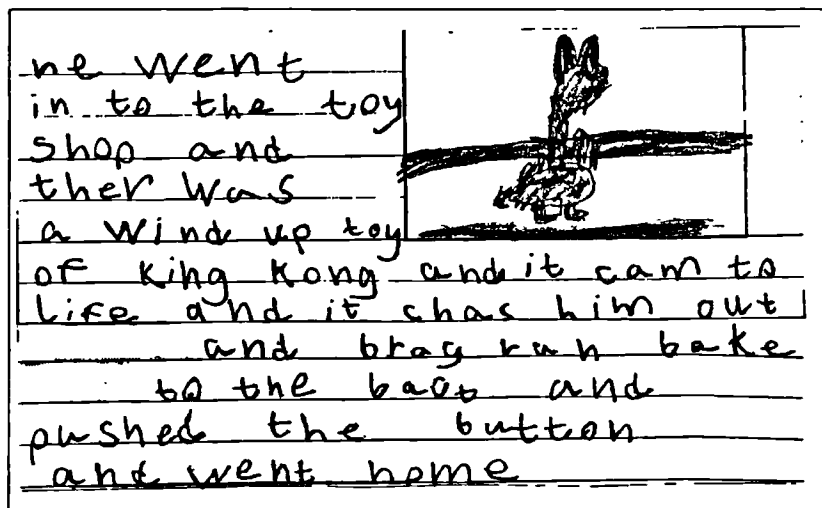 he went
in to the toy
shop and
ther was
a wind up toy
of King Kong and it cam to
Life and it chas him out
and brag ran bake
to the baot and
pushed the button
and went home